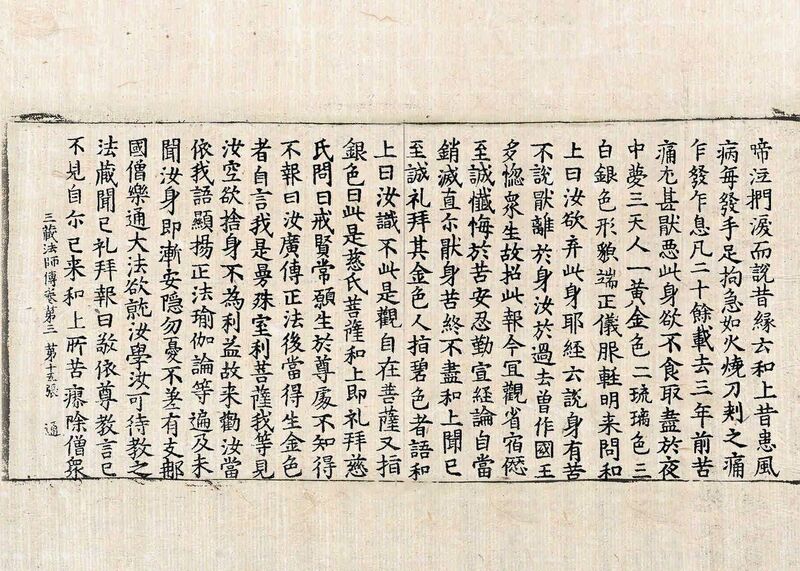 啼泣捫淚而說昔緣云和上昔患風
病每發手足拘急如火燒刀刾之痛
乍發乍息凡二十餘載去三年前苦
痛尤甚猒惡此身欲不食取盡於夜
中夢三天人一黃金色二琉璃色三
白銀色形皃端正儀服輕明來問和
上曰汝欲弃此身耶經云說身有苦
不說猒離於身汝於過去曾作國王
多惱衆生故招此報今冝觀省宿愆
至誠懺悔於苦安忍勤宣經論自當
銷滅直尒猒身苦終不盡和上聞已
至誠礼拜其金色人指碧色者語和
上曰汝識不此是觀自在菩薩又指
銀色曰此是慈氏菩薩和上即礼拜慈
氏問曰戒賢常願生於尊處不知得
不報曰汝廣傳正法後當得生金色
者自言我是曼殊室利菩薩我等見
汝空欲捨身不為利益故來勸汝當
依我語顯揚正法瑜伽論等遍及未
聞汝身即漸安隱勿憂不差有支那
國僧樂通大法欲就汝學汝可待教之
法藏聞已礼拜報曰敬依尊教言已
不見自尒已来和上所苦瘳除僧衆
三藏法師傳卷第三 第十五張 通